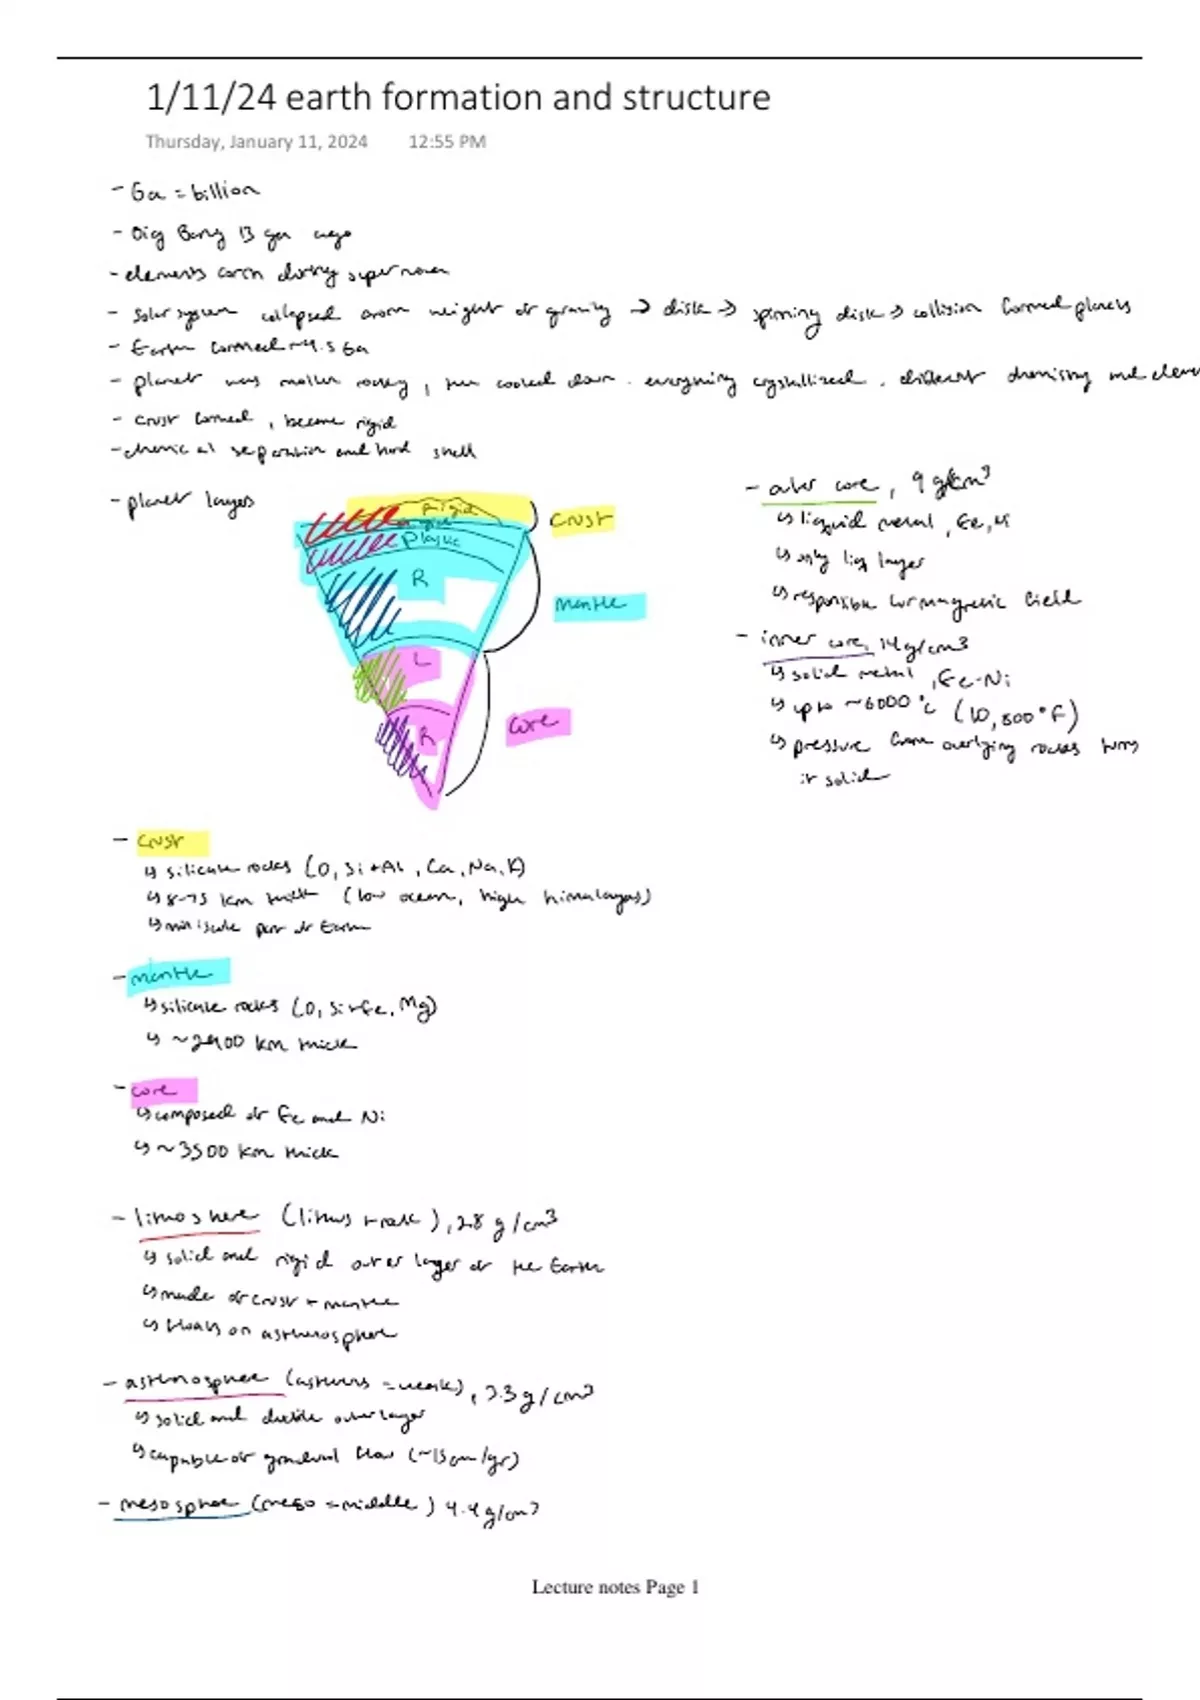 1/11/24 earth formation and structure
Thursday, January 11, 2024 12:55 PM
- Ga = billion
- Big Bang 13 ga ago
- elements form during supernova
- Solar system collapsed from weight of gravity → disk → spinning disk → collision formed planets
- Earth formed ~4.5 Ga
- planet was molten rocky, then cooled down. everything crystallized. different chemistry and elem
- crust formed, became rigid
- chemical separation and hard shell
- planet layers
Rigid
rigid
plastic
R
L
R
crust
mantle
core
- outer core, 9 g/cm³
↳ liquid metal, Fe, Ni
↳ only liq layer
↳ responsible for magnetic field
- inner core, 14 g/cm³
↳ solid metal, Fe-Ni
↳ up to ~6000 °C (10,800°F)
↳ pressure from overlying rocks turns
it solid
- crust
↳ silicate rocks (O, Si + Al, Ca, Na, K)
↳ 8-75 km thick (low ocean, high himalayas)
↳ miniscule part of Earth
- mantle
↳ silicate rocks (O, Si + Fe, Mg)
↳ ~2900 km thick
- core
↳ composed of Fe and Ni
↳ ~3500 km thick
- lithosphere (lithos = rock), 2.8 g/cm³
↳ solid and rigid outer layer of the Earth
↳ made of crust + mantle
↳ floats on asthenosphere
- asthenosphere (asthenos = weak), 3.3 g/cm³
↳ solid and ductile outer layer
↳ capable of gradual flow (~15 cm/yr)
- mesosphere (meso = middle) 4.4 g/cm³
Lecture notes Page 1